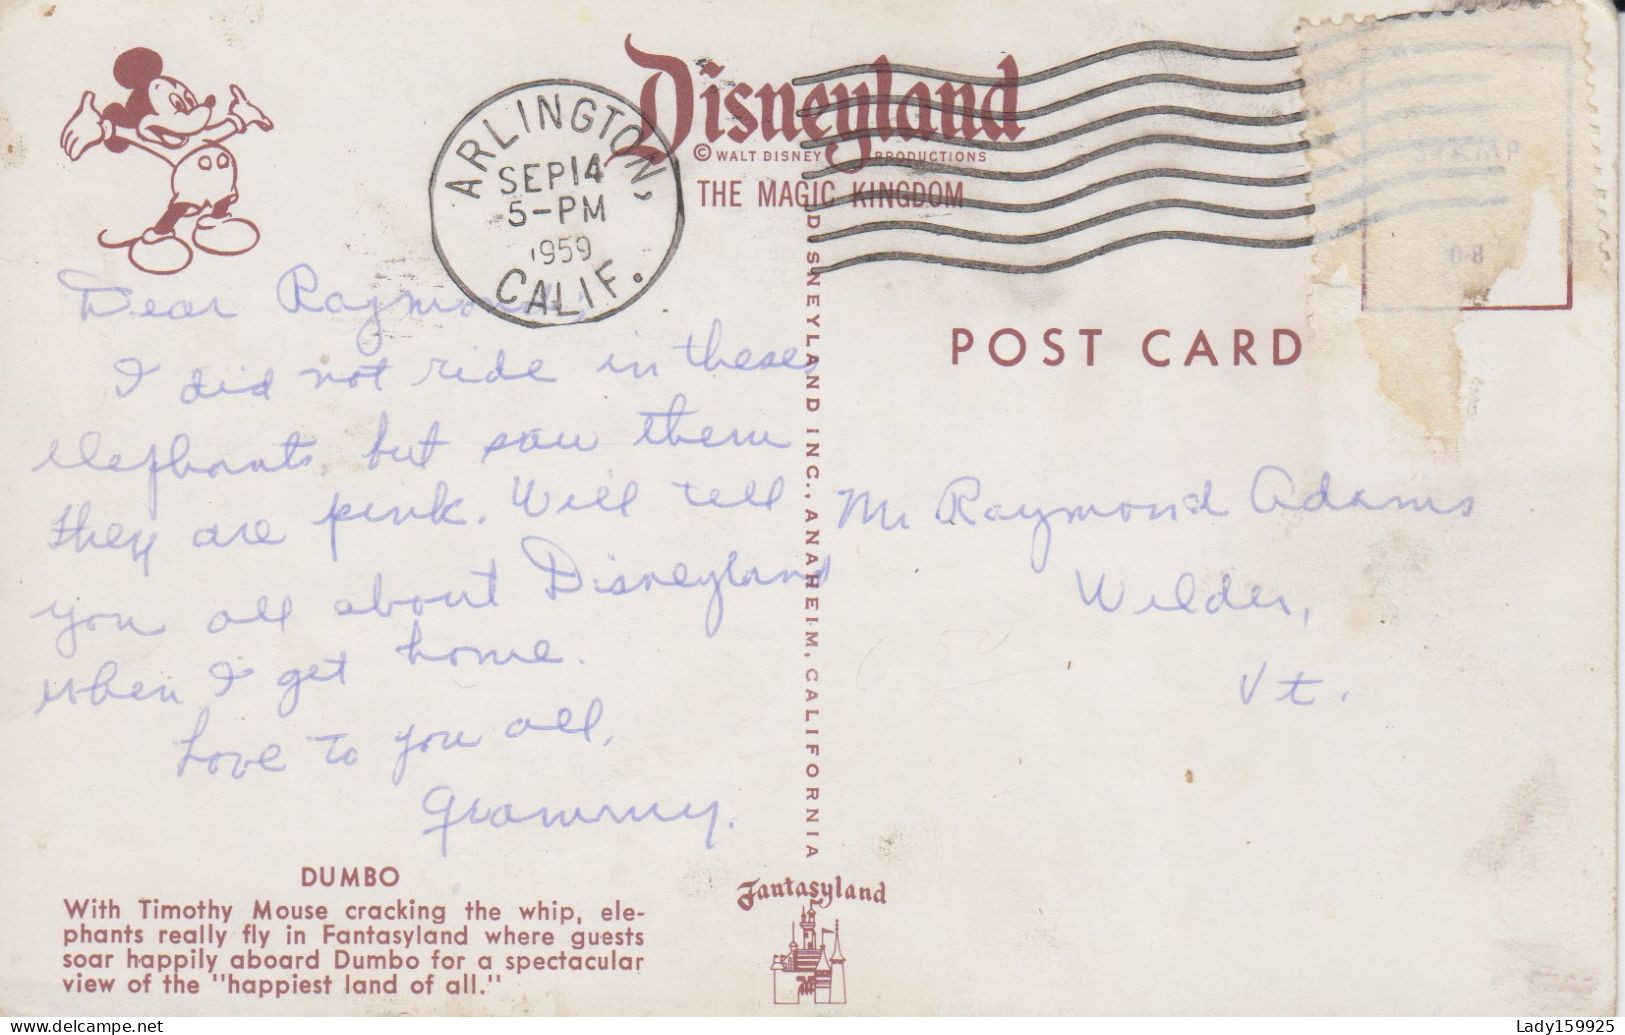 Disneyland
© WALT DISNEY PRODUCTIONS
THE MAGIC KINGDOM
ARLINGTON,
SEP 14
5-PM
1959
CALIF.
STAMP
POST CARD
Dear Raymond,
I did not ride in these
elephants, but saw them
they are pink. Will tell
you all about Disneyland
when I get home.
Love to you all,
Grammy.
DISNEYLAND INC., ANAHEIM, CALIFORNIA
Mr Raymond Adams
Wilder,
Vt.
DUMBO
With Timothy Mouse cracking the whip, ele-
phants really fly in Fantasyland where guests
soar happily aboard Dumbo for a spectacular
view of the "happiest land of all."
Fantasyland
Lady159925